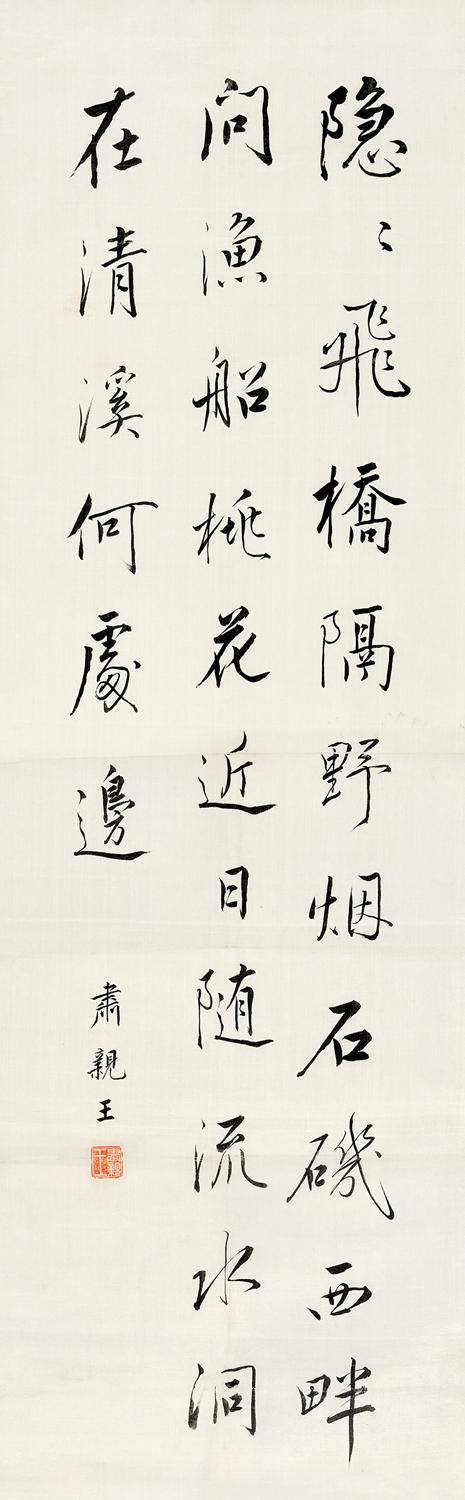 隐〻飛橋隔野烟石磯西畔
問漁船桃花近日随流水洞
在清溪何處邊
肅親王